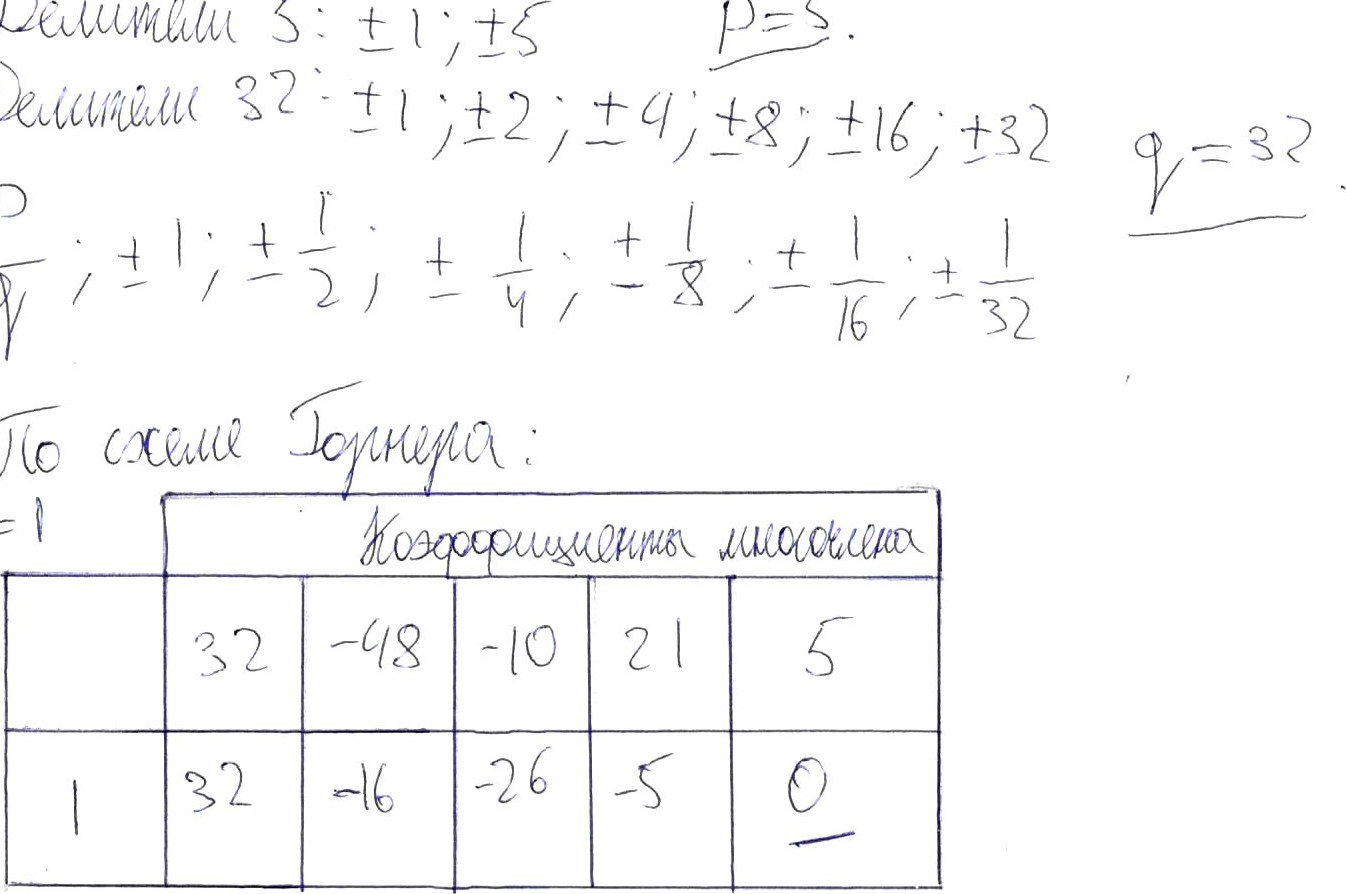 Делители 5: ±1; ±5 p=5.
Делители 32: ±1; ±2; ±4; ±8; ±16; ±32 q=32
p/q; ±1; ±1/2; ±1/4; ±1/8; ±1/16; ±1/32
По схеме Горнера:
=1 Коэффициенты многочлена
32 -48 -10 21 5
1 32 -16 -26 -5 0